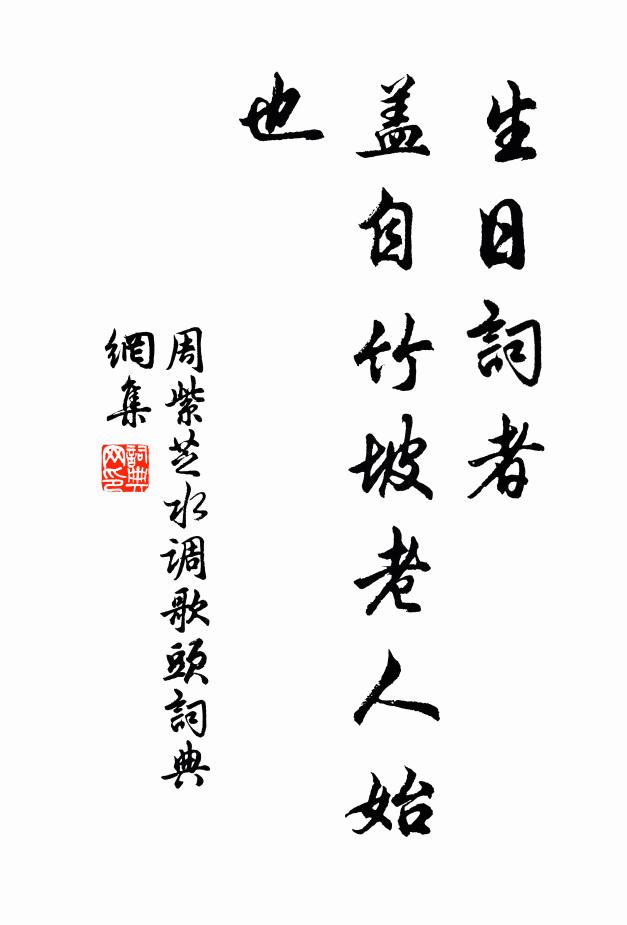 生日詞者
盖自竹坡老人始
也
周紫芝水调歌頭詞典
網集
詞典
网印